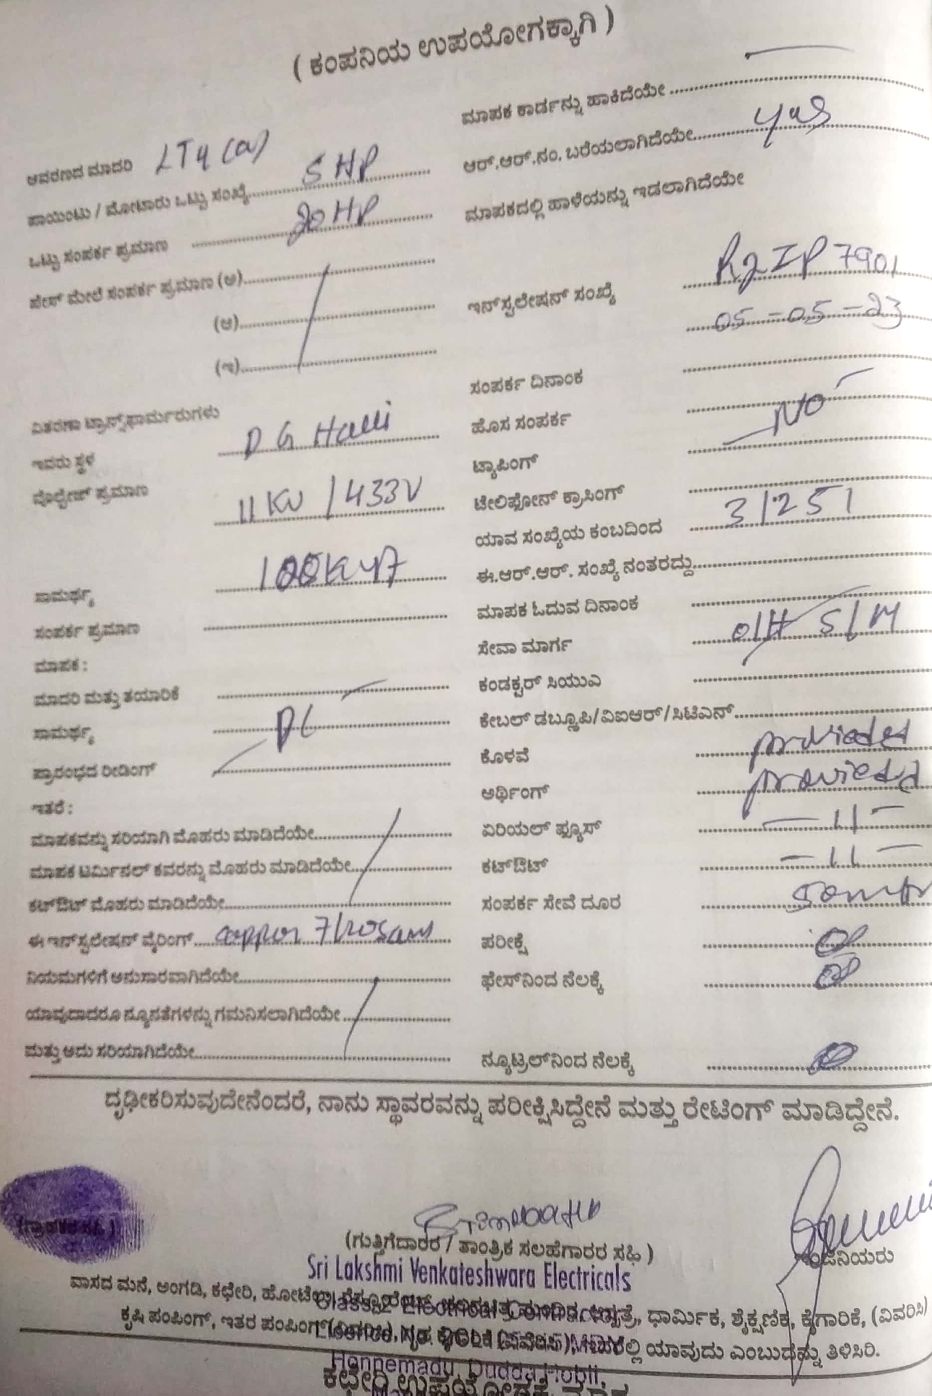 ( ಕಂಪನಿಯ ಉಪಯೋಗಕ್ಕಾಗಿ )
ಆವರಣದ ಮಾದರಿ LT4 (a)
ಪಾಯಿಂಟು / ಮೋಟಾರು ಒಟ್ಟು ಸಂಖ್ಯೆ 5 HP
ಒಟ್ಟು ಸಂಪರ್ಕ ಪ್ರಮಾಣ 20 HP
ಪೇಸ್ ಮೇಲೆ ಸಂಪರ್ಕ ಪ್ರಮಾಣ (ಅ)
(ಆ)
(ಇ)
ವಿತರಣಾ ಟ್ರಾನ್ಸ್‌ಫಾರ್ಮರುಗಳು
ಇವರು ಸ್ಥಳ D G Halli
ವೋಲ್ಟೇಜ್ ಪ್ರಮಾಣ 11 KV / 433V
ಸಾಮರ್ಥ್ಯ 100
ಸಂಪರ್ಕ ಪ್ರಮಾಣ
ಮಾಪಕ :
ಮಾದರಿ ಮತ್ತು ತಯಾರಿಕೆ
ಸಾಮರ್ಥ್ಯ DL
ಪ್ರಾರಂಭದ ರೀಡಿಂಗ್
ಇತರೆ :
ಮಾಪಕವನ್ನು ಸರಿಯಾಗಿ ಮೊಹರು ಮಾಡಿದೆಯೇ
ಮಾಪಕ ಟರ್ಮಿನಲ್ ಕವರನ್ನು ಮೊಹರು ಮಾಡಿದೆಯೇ
ಕಟ್‌ಔಟ್ ಮೊಹರು ಮಾಡಿದೆಯೇ
ಈ ಇನ್‌ಸ್ಟಲೇಷನ್ ವೈರಿಂಗ್
ನಿಯಮಗಳಿಗೆ ಅನುಸಾರವಾಗಿದೆಯೇ
ಯಾವುದಾದರೂ ನ್ಯೂನತೆಗಳನ್ನು ಗಮನಿಸಲಾಗಿದೆಯೇ
ಮತ್ತು ಅದು ಸರಿಯಾಗಿದೆಯೇ
ಮಾಪಕ ಕಾರ್ಡನ್ನು ಹಾಕಿದೆಯೇ
ಆರ್.ಆರ್.ನಂ. ಬರೆಯಲಾಗಿದೆಯೇ yes
ಮಾಪಕದಲ್ಲಿ ಹಾಳೆಯನ್ನು ಇಡಲಾಗಿದೆಯೇ
ಇನ್‌ಸ್ಟಲೇಷನ್ ಸಂಖ್ಯೆ R2IP 7901
05-05-23
ಸಂಪರ್ಕ ದಿನಾಂಕ
ಹೊಸ ಸಂಪರ್ಕ NO
ಟ್ಯಾಪಿಂಗ್
ಟೆಲಿಫೋನ್ ಕ್ರಾಸಿಂಗ್
ಯಾವ ಸಂಖ್ಯೆಯ ಕಂಬದಿಂದ 31251
ಈ.ಆರ್.ಆರ್. ಸಂಖ್ಯೆ ನಂತರದ್ದು
ಮಾಪಕ ಓದುವ ದಿನಾಂಕ
ಸೇವಾ ಮಾರ್ಗ O/H S/M
ಕಂಡಕ್ಟರ್ ಸಿಯುಎ
ಕೇಬಲ್ ಡಬ್ಲೂಪಿ/ವಿಐಆರ್/ಸಿಟಿಎಸ್
ಕೊಳವೆ provided
ಅರ್ಥಿಂಗ್ provided
ಏರಿಯಲ್ ಫ್ಯೂಸ್ — 11 —
ಕಟ್‌ಔಟ್ — 11 —
ಸಂಪರ್ಕ ಸೇವೆ ದೂರ
ಪರೀಕ್ಷೆ
ಫೇಸ್‌ನಿಂದ ನೆಲಕ್ಕೆ
ನ್ಯೂಟ್ರಲ್‌ನಿಂದ ನೆಲಕ್ಕೆ
ದೃಢೀಕರಿಸುವುದೇನೆಂದರೆ, ನಾನು ಸ್ಥಾವರವನ್ನು ಪರೀಕ್ಷಿಸಿದ್ದೇನೆ ಮತ್ತು ರೇಟಿಂಗ್ ಮಾಡಿದ್ದೇನೆ.
(ಗ್ರಾಹಕರ ಸಹಿ )
(ಗುತ್ತಿಗೆದಾರರ / ತಾಂತ್ರಿಕ ಸಲಹೆಗಾರರ ಸಹಿ )
ಇಂಜಿನಿಯರು
Sri Lakshmi Venkateshwara Electricals
ವಾಸದ ಮನೆ, ಅಂಗಡಿ, ಕಛೇರಿ, ಹೋಟೆಲ್, ಧಾರ್ಮಿಕ, ಶೈಕ್ಷಣಿಕ, ಕೈಗಾರಿಕೆ, (ವಿವರಿಸಿ)
ಕೃಷಿ ಪಂಪಿಂಗ್, ಇತರ ಪಂಪಿಂಗ್ ಯಾವುದು ಎಂಬುದನ್ನು ತಿಳಿಸಿರಿ.
Honnemadu, Dudda Hobli,